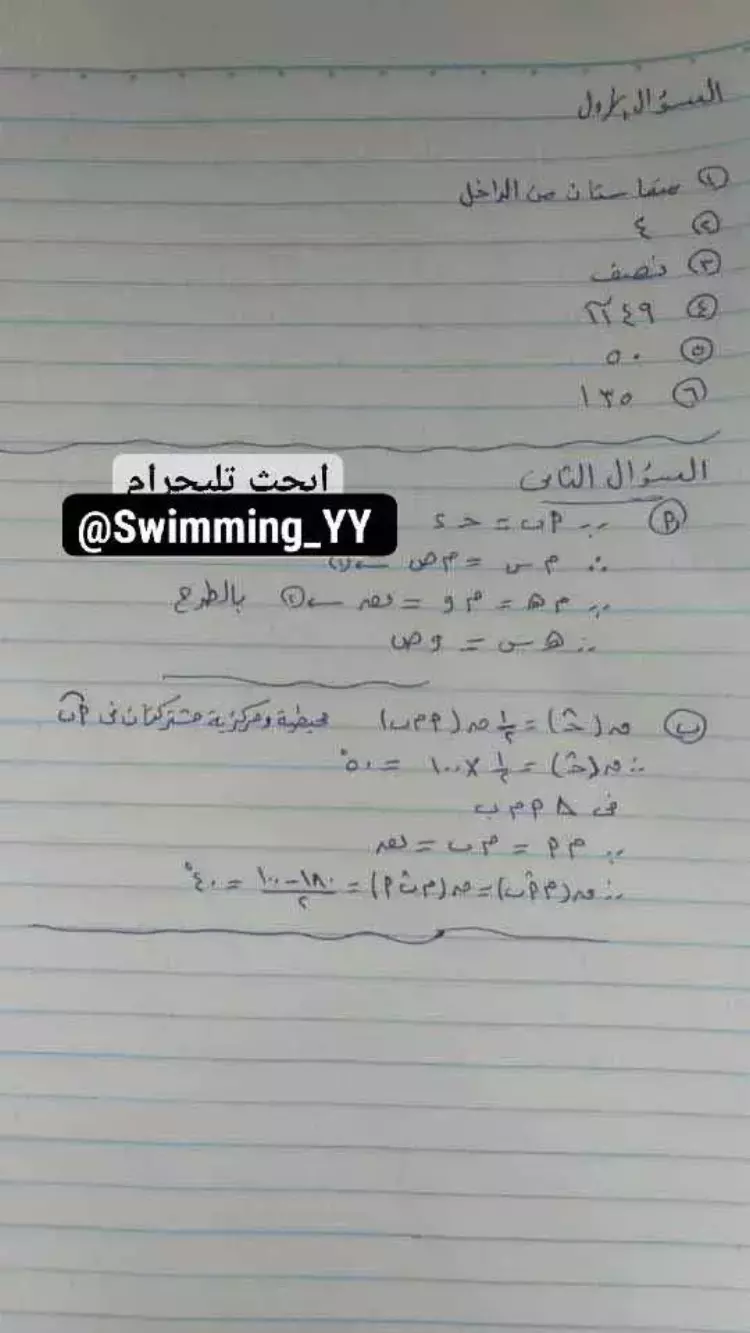 السؤال الأول
① متماستان من الداخل
② ٤
③ نصف
④ ٤٩ π
⑤ ٥٠
⑥ ١٣٥
السؤال الثانى
ابحث تليجرام
@Swimming_YY
Ⓟ ∵ م‍ ب = حـ ء
∴ م س = م ص ← (١)
∵ م هـ = م و = نق ← ② بالطرح
∴ هـ س = و ص
ب ق (حـ̂) = ١/٢ ق (م‍ م ب) محيطية ومركزية مشتركتان فى م‍ ب
∴ ق (حـ̂) = ١/٢ × ١٠٠ = ٥٠°
فى Δ م‍ م ب
∵ م م‍ = م ب = نق
∴ ق (م م‍̂ ب) = ق (م ب̂ م‍) = (١٨٠ − ١٠٠)/٢ = ٤٠°